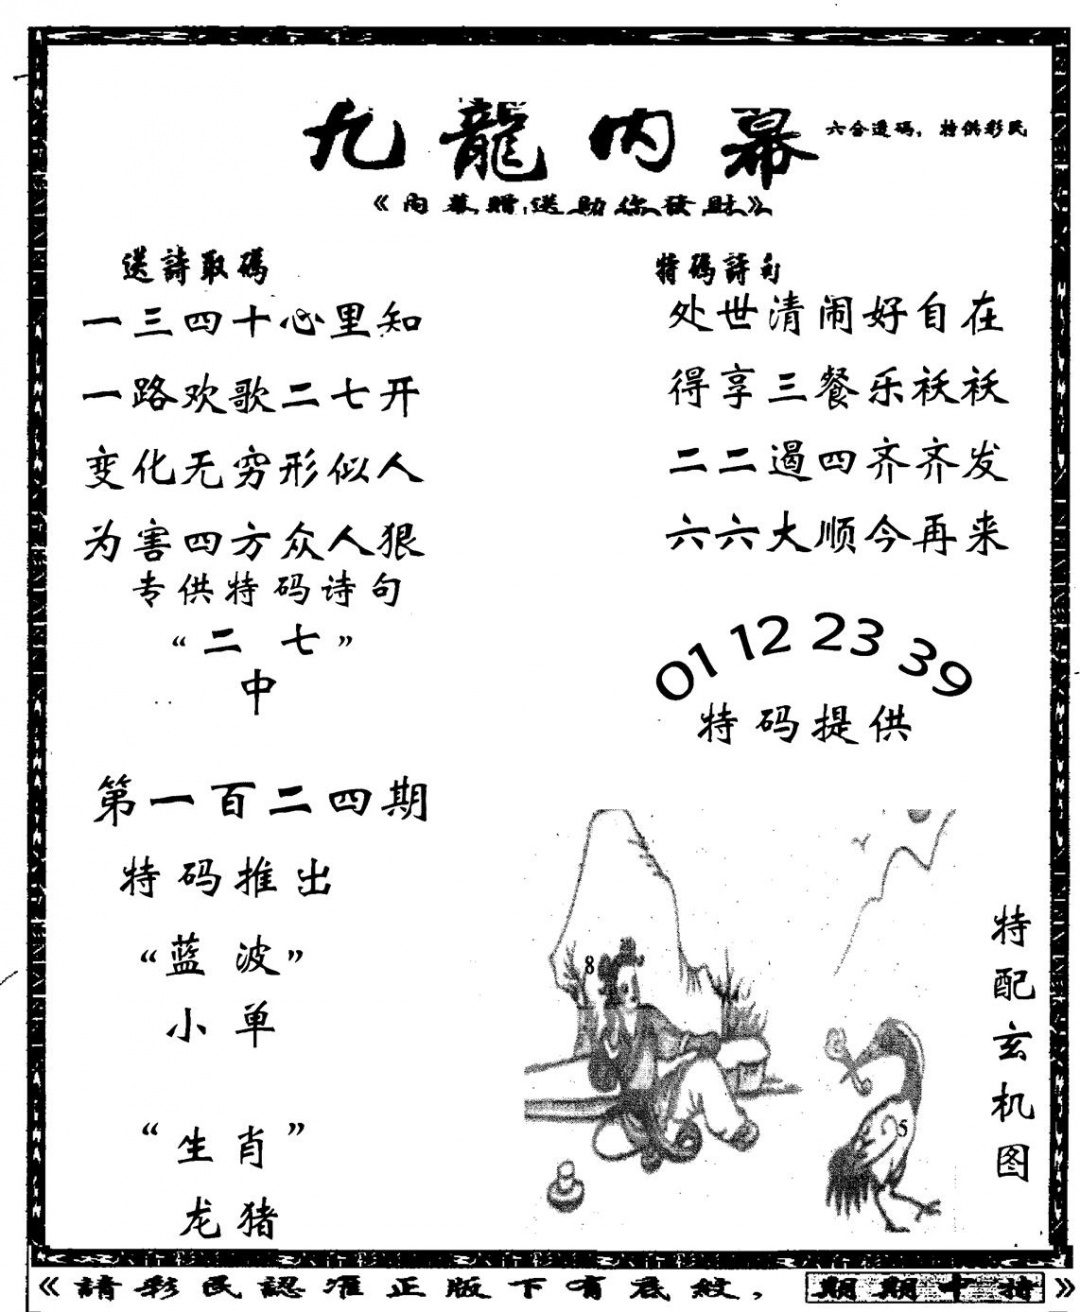 九龍內幕
六合透码，特供彩民
《內幕贈送助你發財》
送詩取碼
一三四十心里知
一路欢歌二七开
变化无穷形似人
为害四方众人狠
专供特码诗句
“二 七”
中
特碼詩句
处世清闹好自在
得享三餐乐袄袄
二二遏四齐齐发
六六大顺今再来
01 12 23 39
特码提供
第一百二四期
特码推出
“蓝 波”
小 单
“生 肖”
龙 猪
8
5
特配玄机图
《請彩民認准正版下有底紋，期期中特》